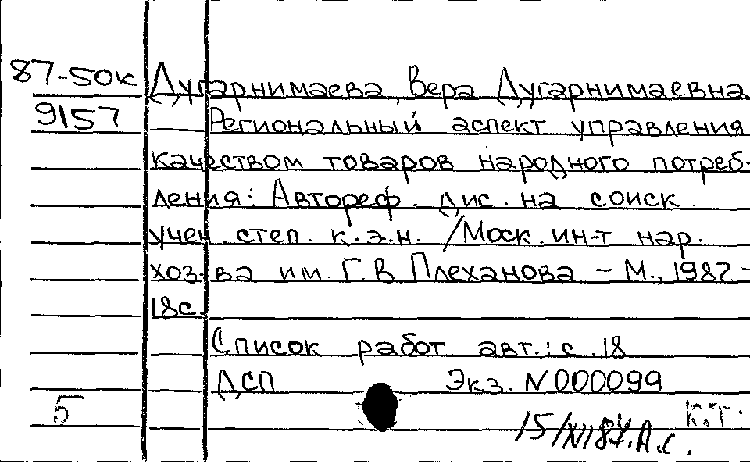 87-50к Дугарнимаева Вера Дугарнимаевна
9157 Региональный аспект управления
качеством товаров народного потреб-
ления: Автореф. дис. на соиск.
учен. степ. к.э.н. /Моск. ин-т нар.
хоз-ва им. Г.В Плеханова – М., 1987 –
18с.
Список работ авт.: с. 18
ДСП Экз. N 000099
5 К.Т.
15/XII87. А.С.